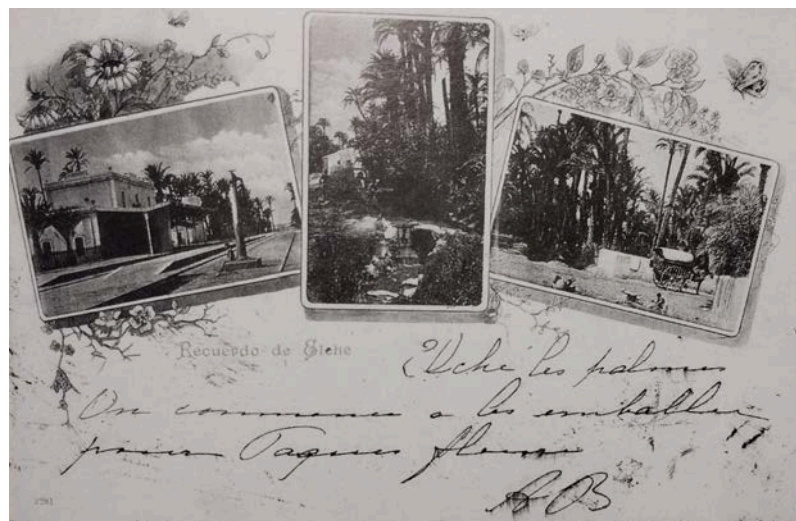 Recuerdo de Elche
Elche les palmes
On commence a les emballer
pour Paques
A B